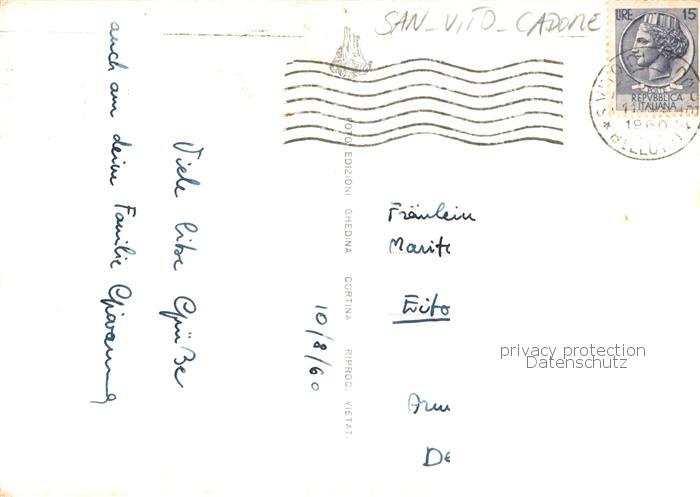 SAN-VITO-CADORE
LIRE 15
POSTE
REPVBBLICA
ITALIANA
1960
BELLUNO
Viele liebe Grüße
auch an deine Familie Giovanna
10/8/60
FOTO EDIZIONI GHEDINA CORTINA RIPROD. VIETAT.
Fräulein
Marite
privacy protection
Datenschutz
De